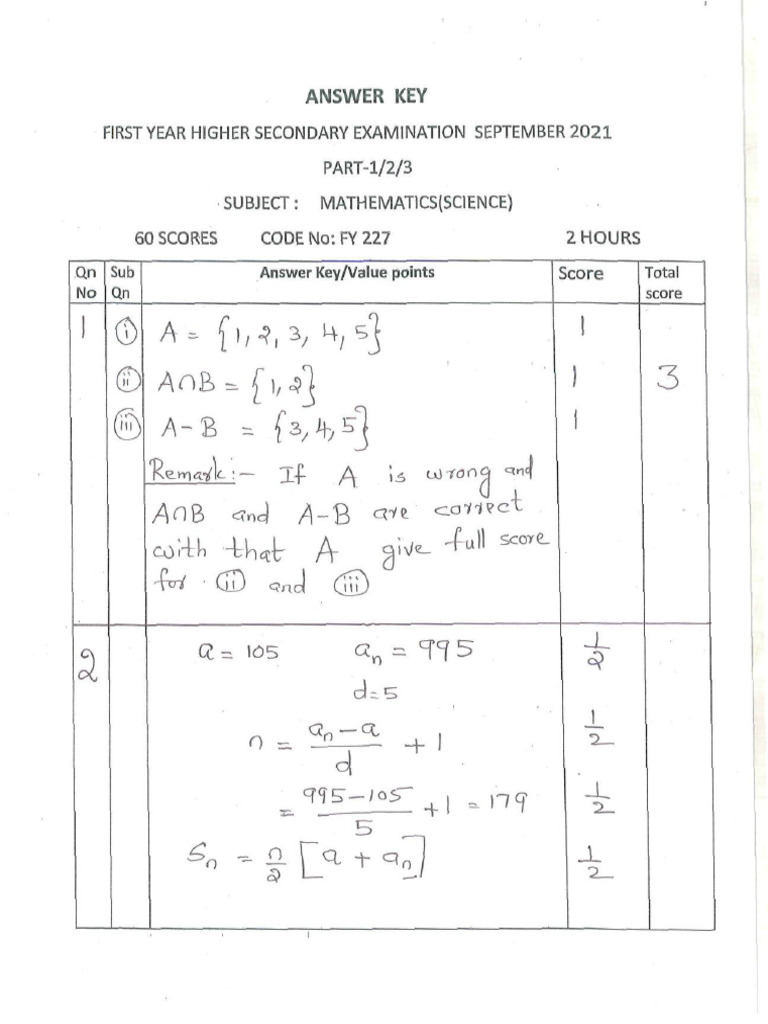 ANSWER KEY
FIRST YEAR HIGHER SECONDARY EXAMINATION SEPTEMBER 2021
PART-1/2/3
SUBJECT : MATHEMATICS(SCIENCE)
60 SCORES CODE No: FY 227 2 HOURS
Qn No Sub Qn Answer Key/Value points Score Total score
1 (i) A = {1, 2, 3, 4, 5} 1
(ii) A∩B = {1, 2} 1 3
(iii) A-B = {3, 4, 5} 1
Remark:- If A is wrong and
A∩B and A-B are correct
with that A give full score
for (ii) and (iii)
2 a = 105 aₙ = 995 1/2
d=5
n = (aₙ-a)/d + 1 1/2
= (995-105)/5 + 1 = 179 1/2
Sₙ = n/2 [a + aₙ] 1/2